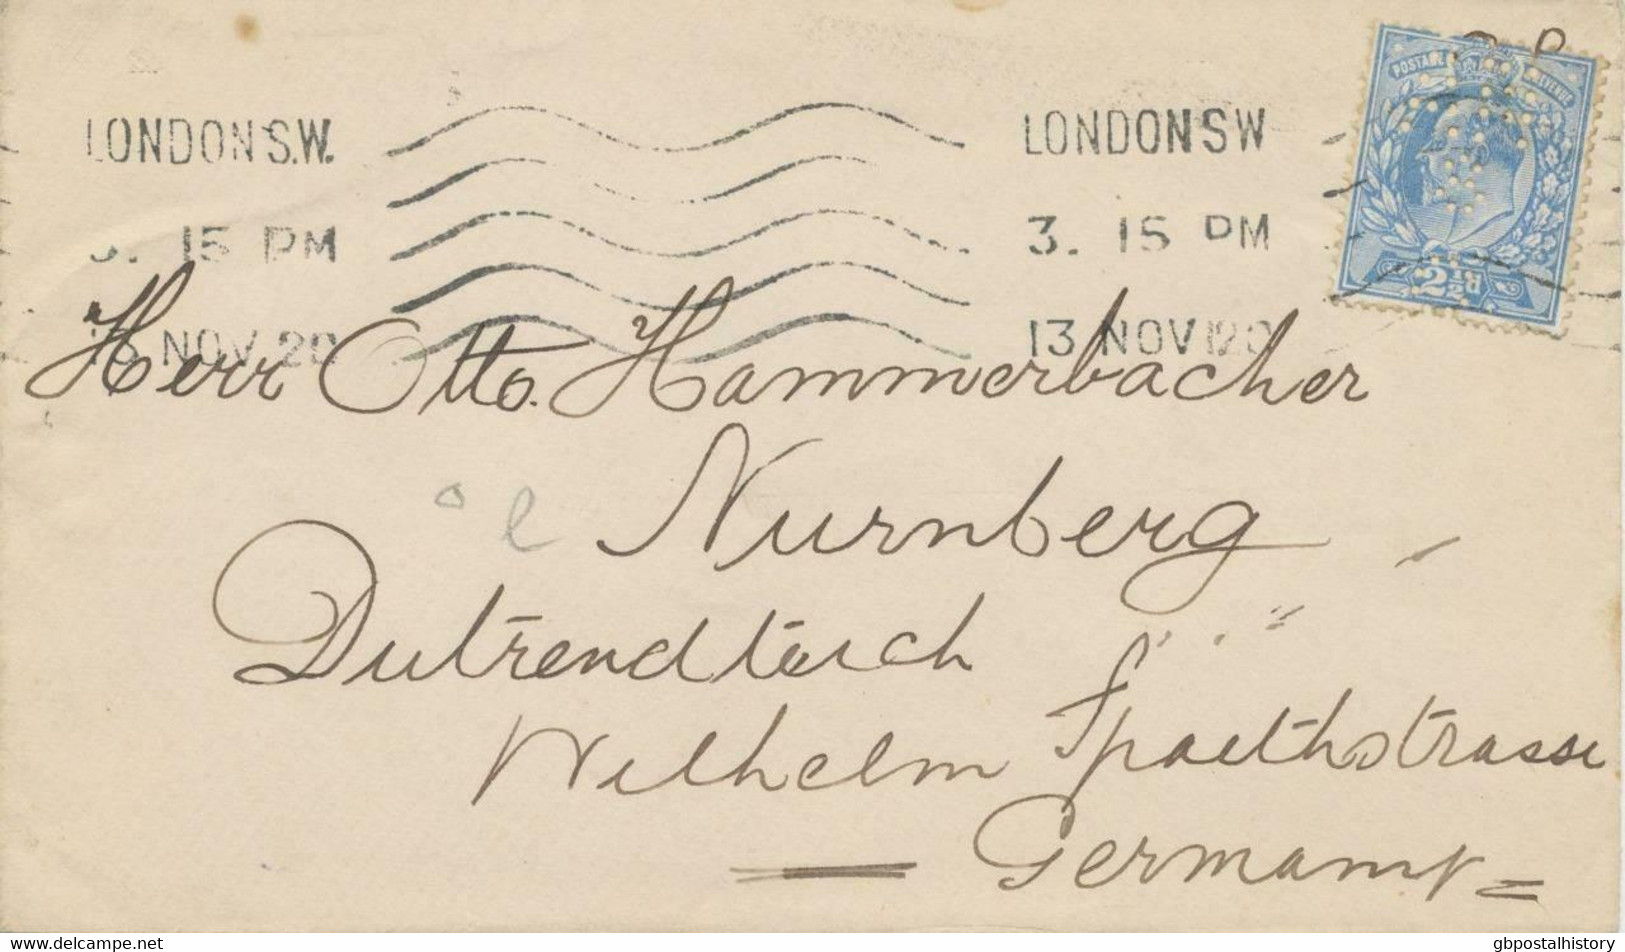 LONDON S.W.
15 PM
NOV 20
LONDON S W
3. 15 PM
13 NOV 20
POSTAGE REVENUE
2½d
Herr Otto. Hammerbacher
Nurnberg
Dutrendteich
Wilhelm Spaethstrasse
Germany
www.delcampe.net
gbpostalhistory